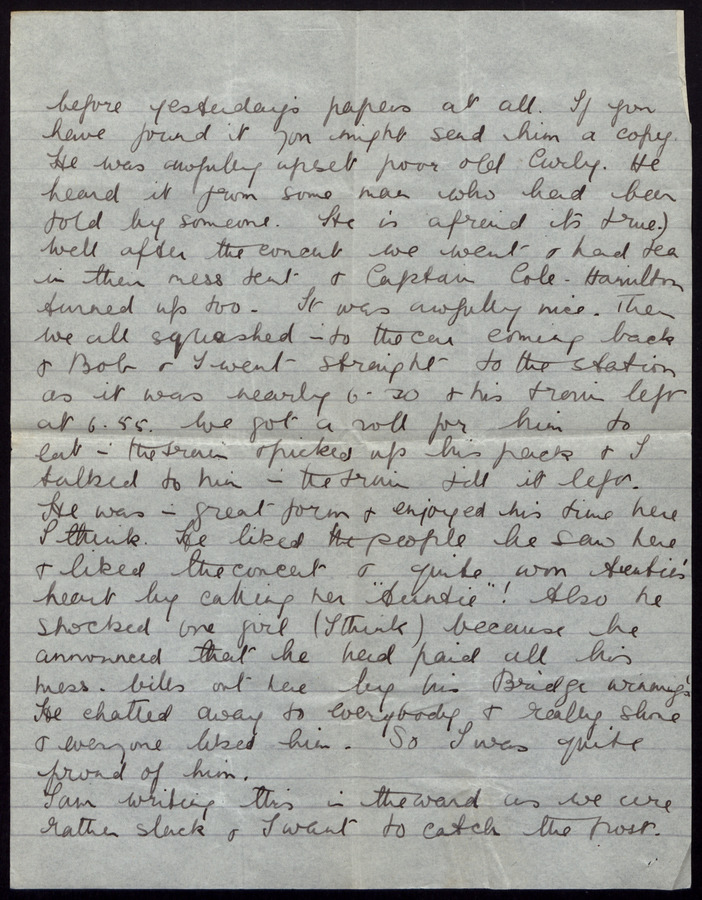 before yesterday's papers at all. If you
have found it you might send him a copy.
He was awfully upset poor old Curly. He
heard it from some man who had been
told by someone. He is afraid its true.)
Well after the concert we went & had tea
in their mess tent & Captain Cole-Hamilton
turned up too. It was awfully nice. Then
we all squashed into the car coming back
& Bob & I went straight to the station
as it was nearly 6-20 & his train left
at 6.55. We got a roll for him to
eat in the train & picked up his pack & I
talked to him in the train till it left.
He was in great form & enjoyed his time here
I think. He liked the people he saw here
& liked the concert & quite won Auntie's
heart by calling her "Auntie"! Also he
shocked one girl (I think) because he
announced that he had paid all his
mess bills out here by his Bridge winnings.
He chatted away to everybody & really shone
& everyone liked him. So I was quite
proud of him.
I am writing this in the ward as we are
rather slack & I want to catch the post.